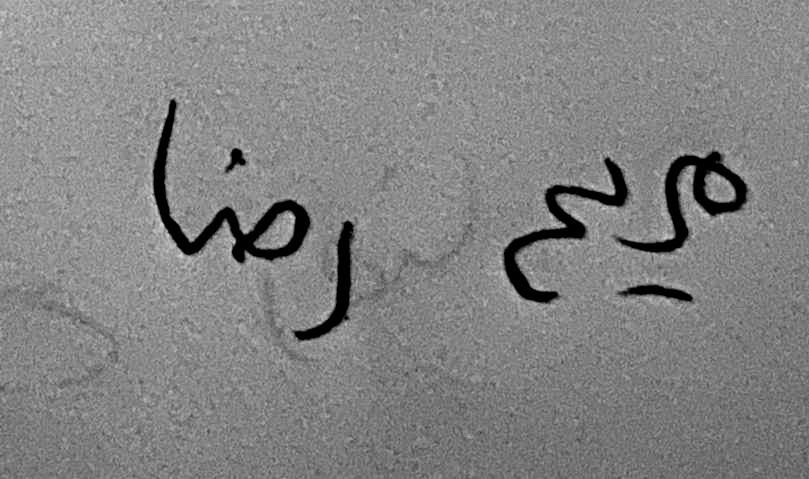 مريح رضا